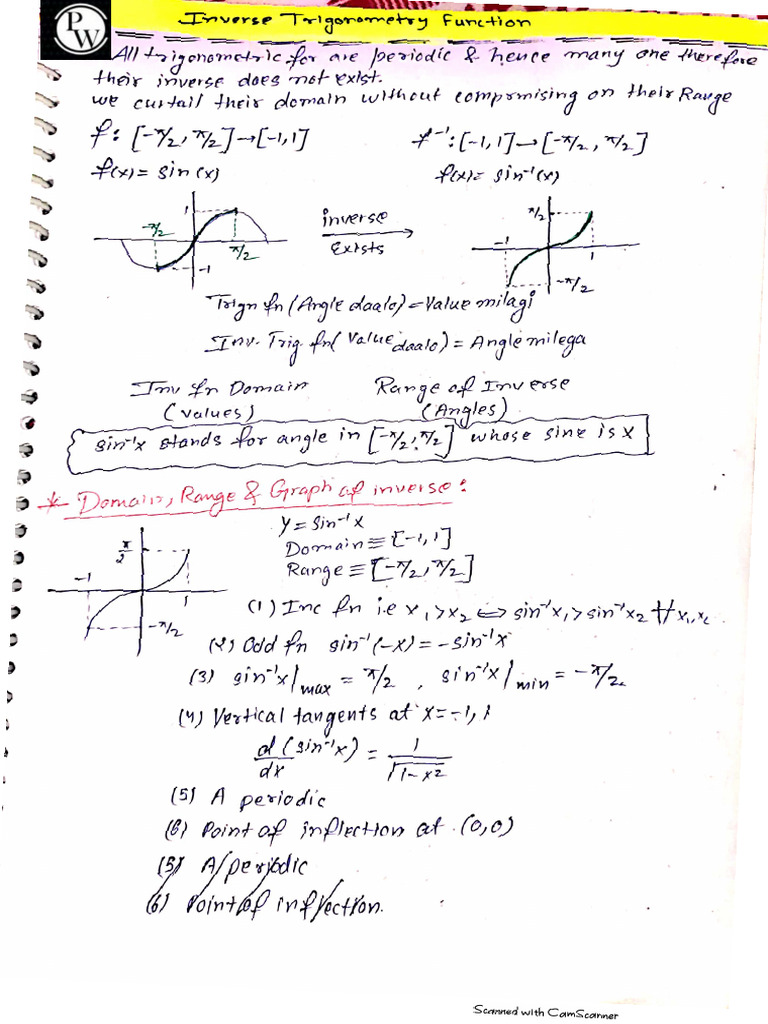 PW
Inverse Trigonometry Function
All trigonometric fcn are periodic & hence many one therefore
their inverse does not exist.
we curtail their domain without compromising on their Range
f: [-π/2, π/2]→[-1,1]
f⁻¹: [-1,1]→[-π/2, π/2]
f(x) = sin(x)
f(x) = sin⁻¹(x)
1
-π/2
π/2
-1
inverse
Exists
π/2
-1
1
-π/2
Trign fn (Angle daalo) = Value milagi
Inv. Trig. fn (Value daalo) = Angle milega
Inv fn Domain
(values)
Range of Inverse
(Angles)
sin⁻¹x stands for angle in [-π/2, π/2] whose sine is x
* Domain, Range & Graph of inverse:
π/2
-1
1
-π/2
y = sin⁻¹x
Domain ≡ [-1,1]
Range ≡ [-π/2, π/2]
(1) Inc fn i.e x₁>x₂ ⟺ sin⁻¹x₁ > sin⁻¹x₂ ∀ x₁,x₂
(2) Odd fn sin⁻¹(-x) = -sin⁻¹x
(3) sin⁻¹x|max = π/2 , sin⁻¹x|min = -π/2
(4) Vertical tangents at x = -1, 1
d(sin⁻¹x)/dx = 1/√(1-x²)
(5) A periodic
(6) Point of inflection at (0,0)
(5) A periodic
(6) Point of inflection.
Scanned with CamScanner